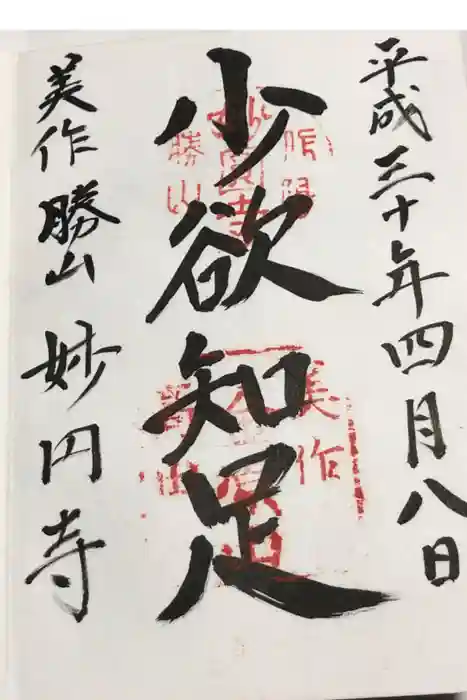 平成三十年四月八日
少欲知足
美作勝山 妙円寺
美作
勝山